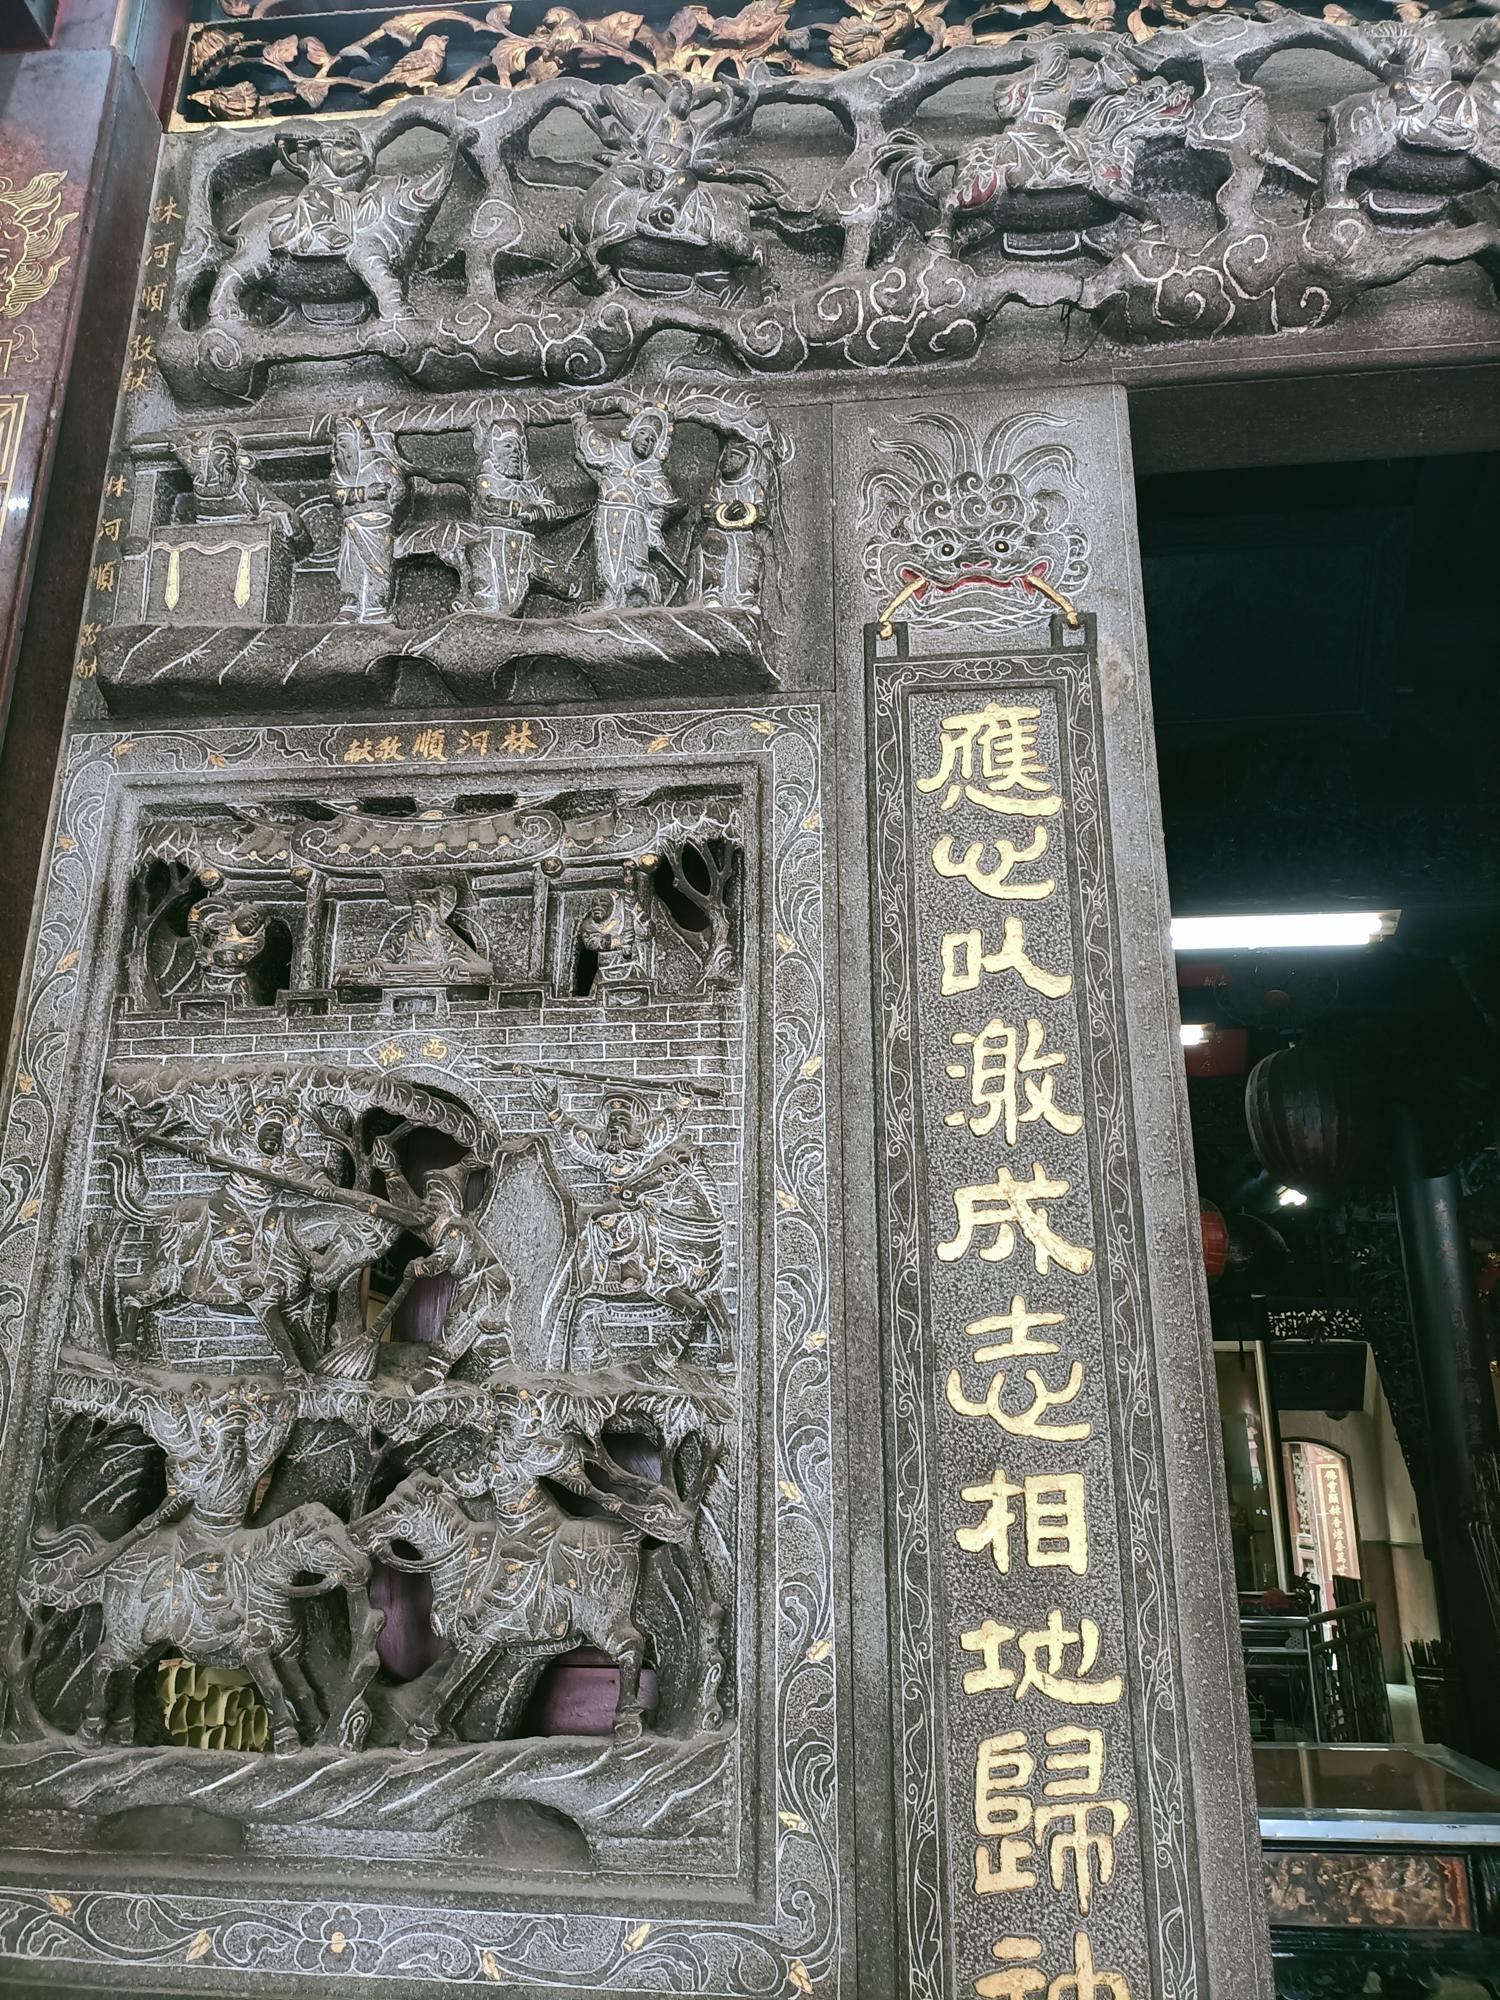 林河順敬献
林河順敬献
林河順敬献
西城
應心以澉成志相地歸神